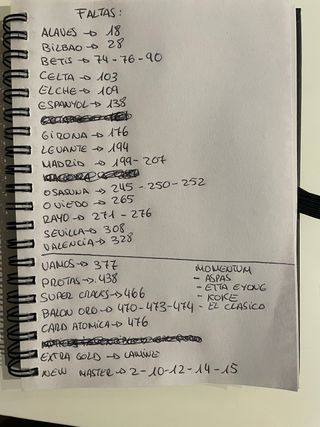 FALTAS:
ALAVES → 18
BILBAO → 28
BETIS → 74-76-90
CELTA → 103
ELCHE → 109
ESPANYOL → 138
GIRONA → 176
LEVANTE → 194
MADRID → 199-207
OSASUNA → 245-250-252
OVIEDO → 265
RAYO → 271-276
SEVILLA → 308
VALENCIA → 328
VAMOS → 377
PROTAS → 438
SUPER CRACKS → 466
BALON ORO → 470-473-474
CARD ATOMICA → 476
EXTRA GOLD → LAMINE
NEW MASTER → 2-10-12-14-15
MOMENTUM
- ASPAS
- ETTA EYONG
- KOKE
- EL CLASICO